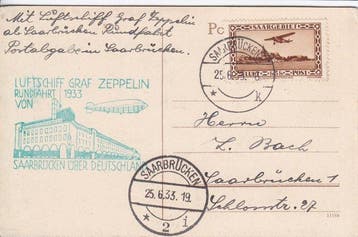 Mit Luftschiff Graf Zeppelin
at Saarbrücken Rundfahrt
Portalgabe in Saarbrücken.
Pc
SAARGEBIET
LUFT-POST
SAARBRÜCKEN
25.6.33.
* k
LUFTSCHIFF GRAF ZEPPELIN
RUNDFAHRT 1933
VON
SAARBRÜCKEN ÜBER DEUTSCHLAN
SAARBRÜCKEN
25.6.33.19.
* 2 i
Herrn
L. Bach
Saarbrücken 1